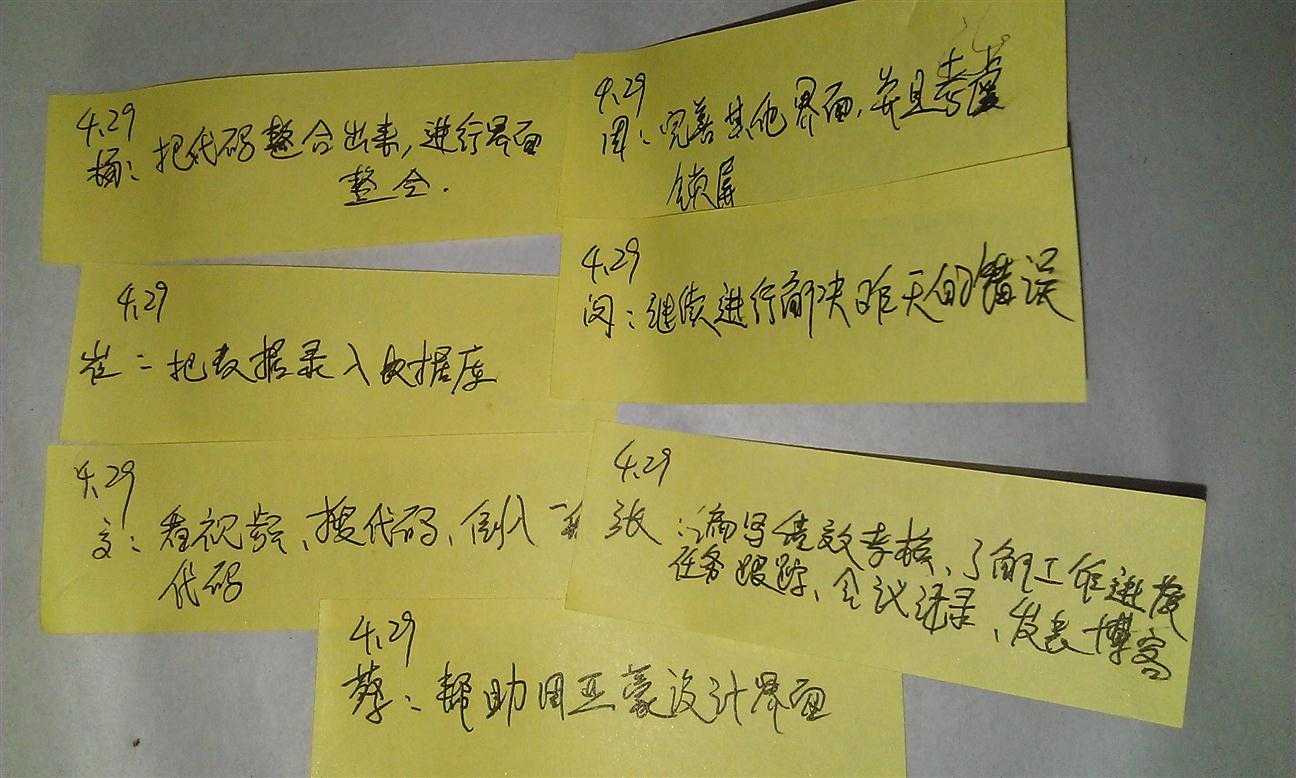 4.29
杨：把代码整合出来，进行界面
整合.
4.29
周：完善其他界面，并且考虑
锁屏
4.29
崔：把数据录入数据库
4.29
闵：继续进行解决昨天的错误
4.29
文：看视频、搜代码、倒入一些
代码
4.29
张：编写绩效考核、了解工作进度
任务跟踪、会议记录、发表博客
4.29
蔡：帮助周亚豪设计界面